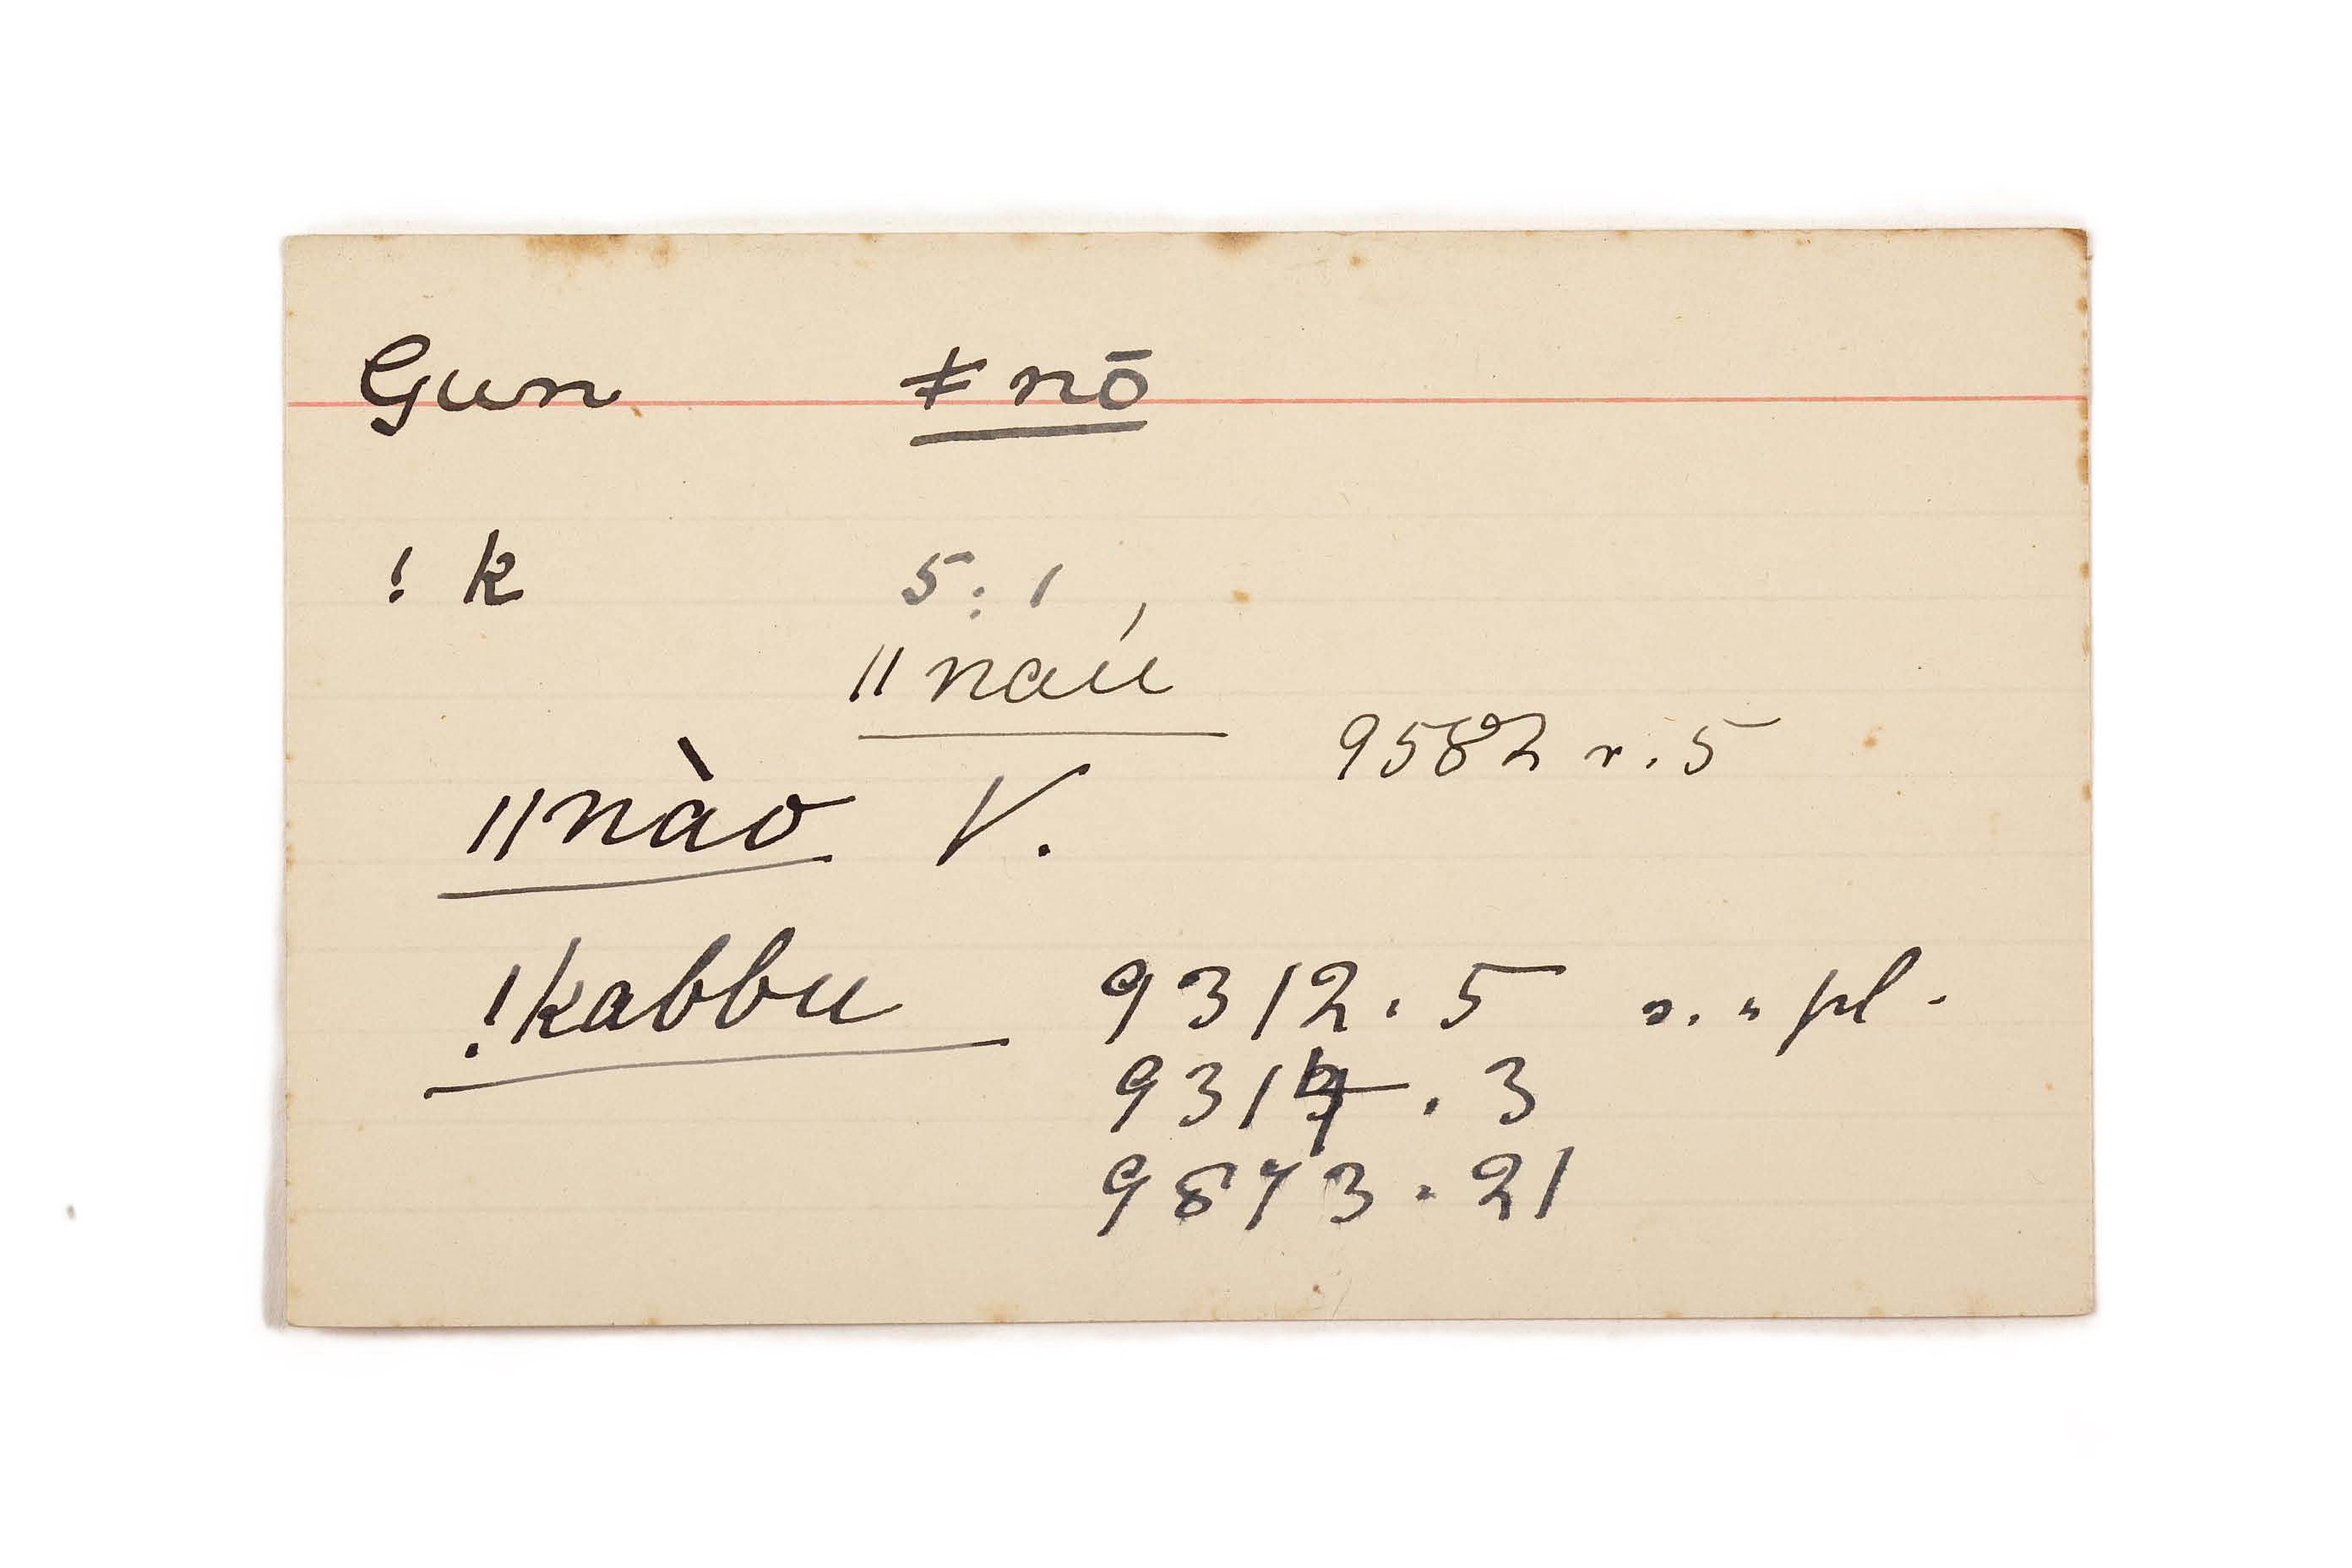 Gun ǂnō
! k 5:1,
ǁnaú
9582 r. 5
ǁnào V.
!kabbu 9312.5 s. " pl.
931 . 3
9873.21